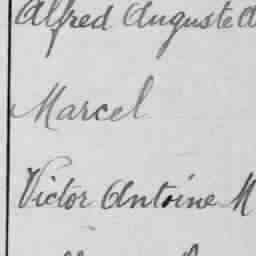 Alfred Auguste
Marcel
Victor Antoine M